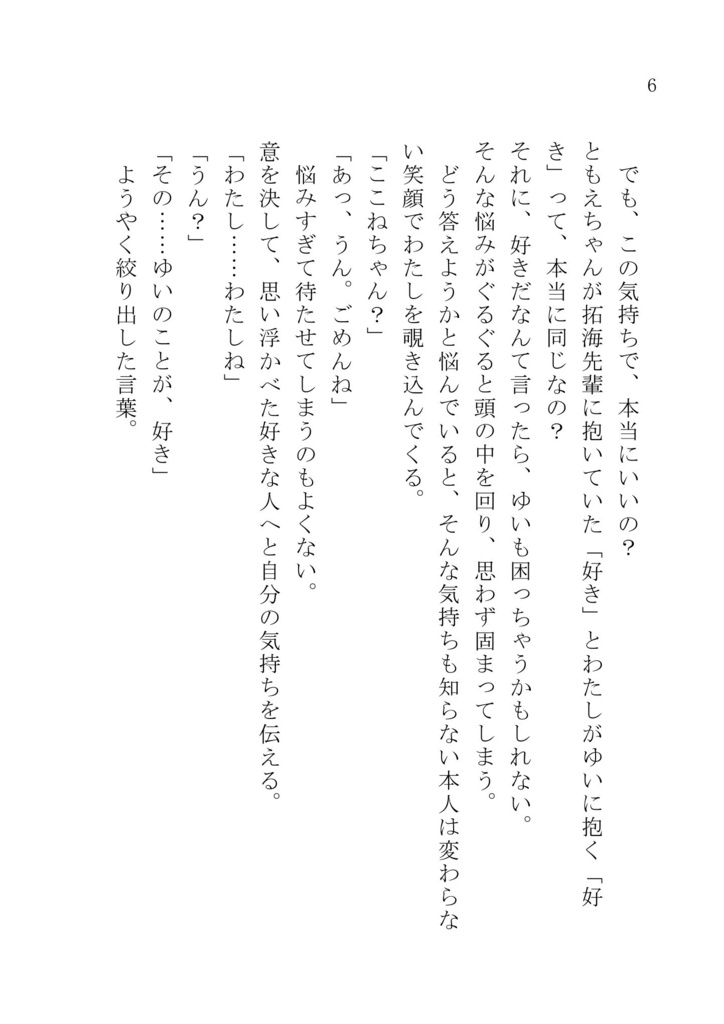 6
でも、この気持ちで、本当にいいの？
ともえちゃんが拓海先輩に抱いていた「好き」とわたしがゆいに抱く「好
き」って、本当に同じなの？
それに、好きだなんて言ったら、ゆいも困っちゃうかもしれない。
そんな悩みがぐるぐると頭の中を回り、思わず固まってしまう。
どう答えようかと悩んでいると、そんな気持ちも知らない本人は変わらな
い笑顔でわたしを覗き込んでくる。
「ここねちゃん？」
「あっ、うん。ごめんね」
悩みすぎて待たせてしまうのもよくない。
意を決して、思い浮かべた好きな人へと自分の気持ちを伝える。
「わたし……わたしね」
「うん？」
「その……ゆいのことが、好き」
ようやく絞り出した言葉。